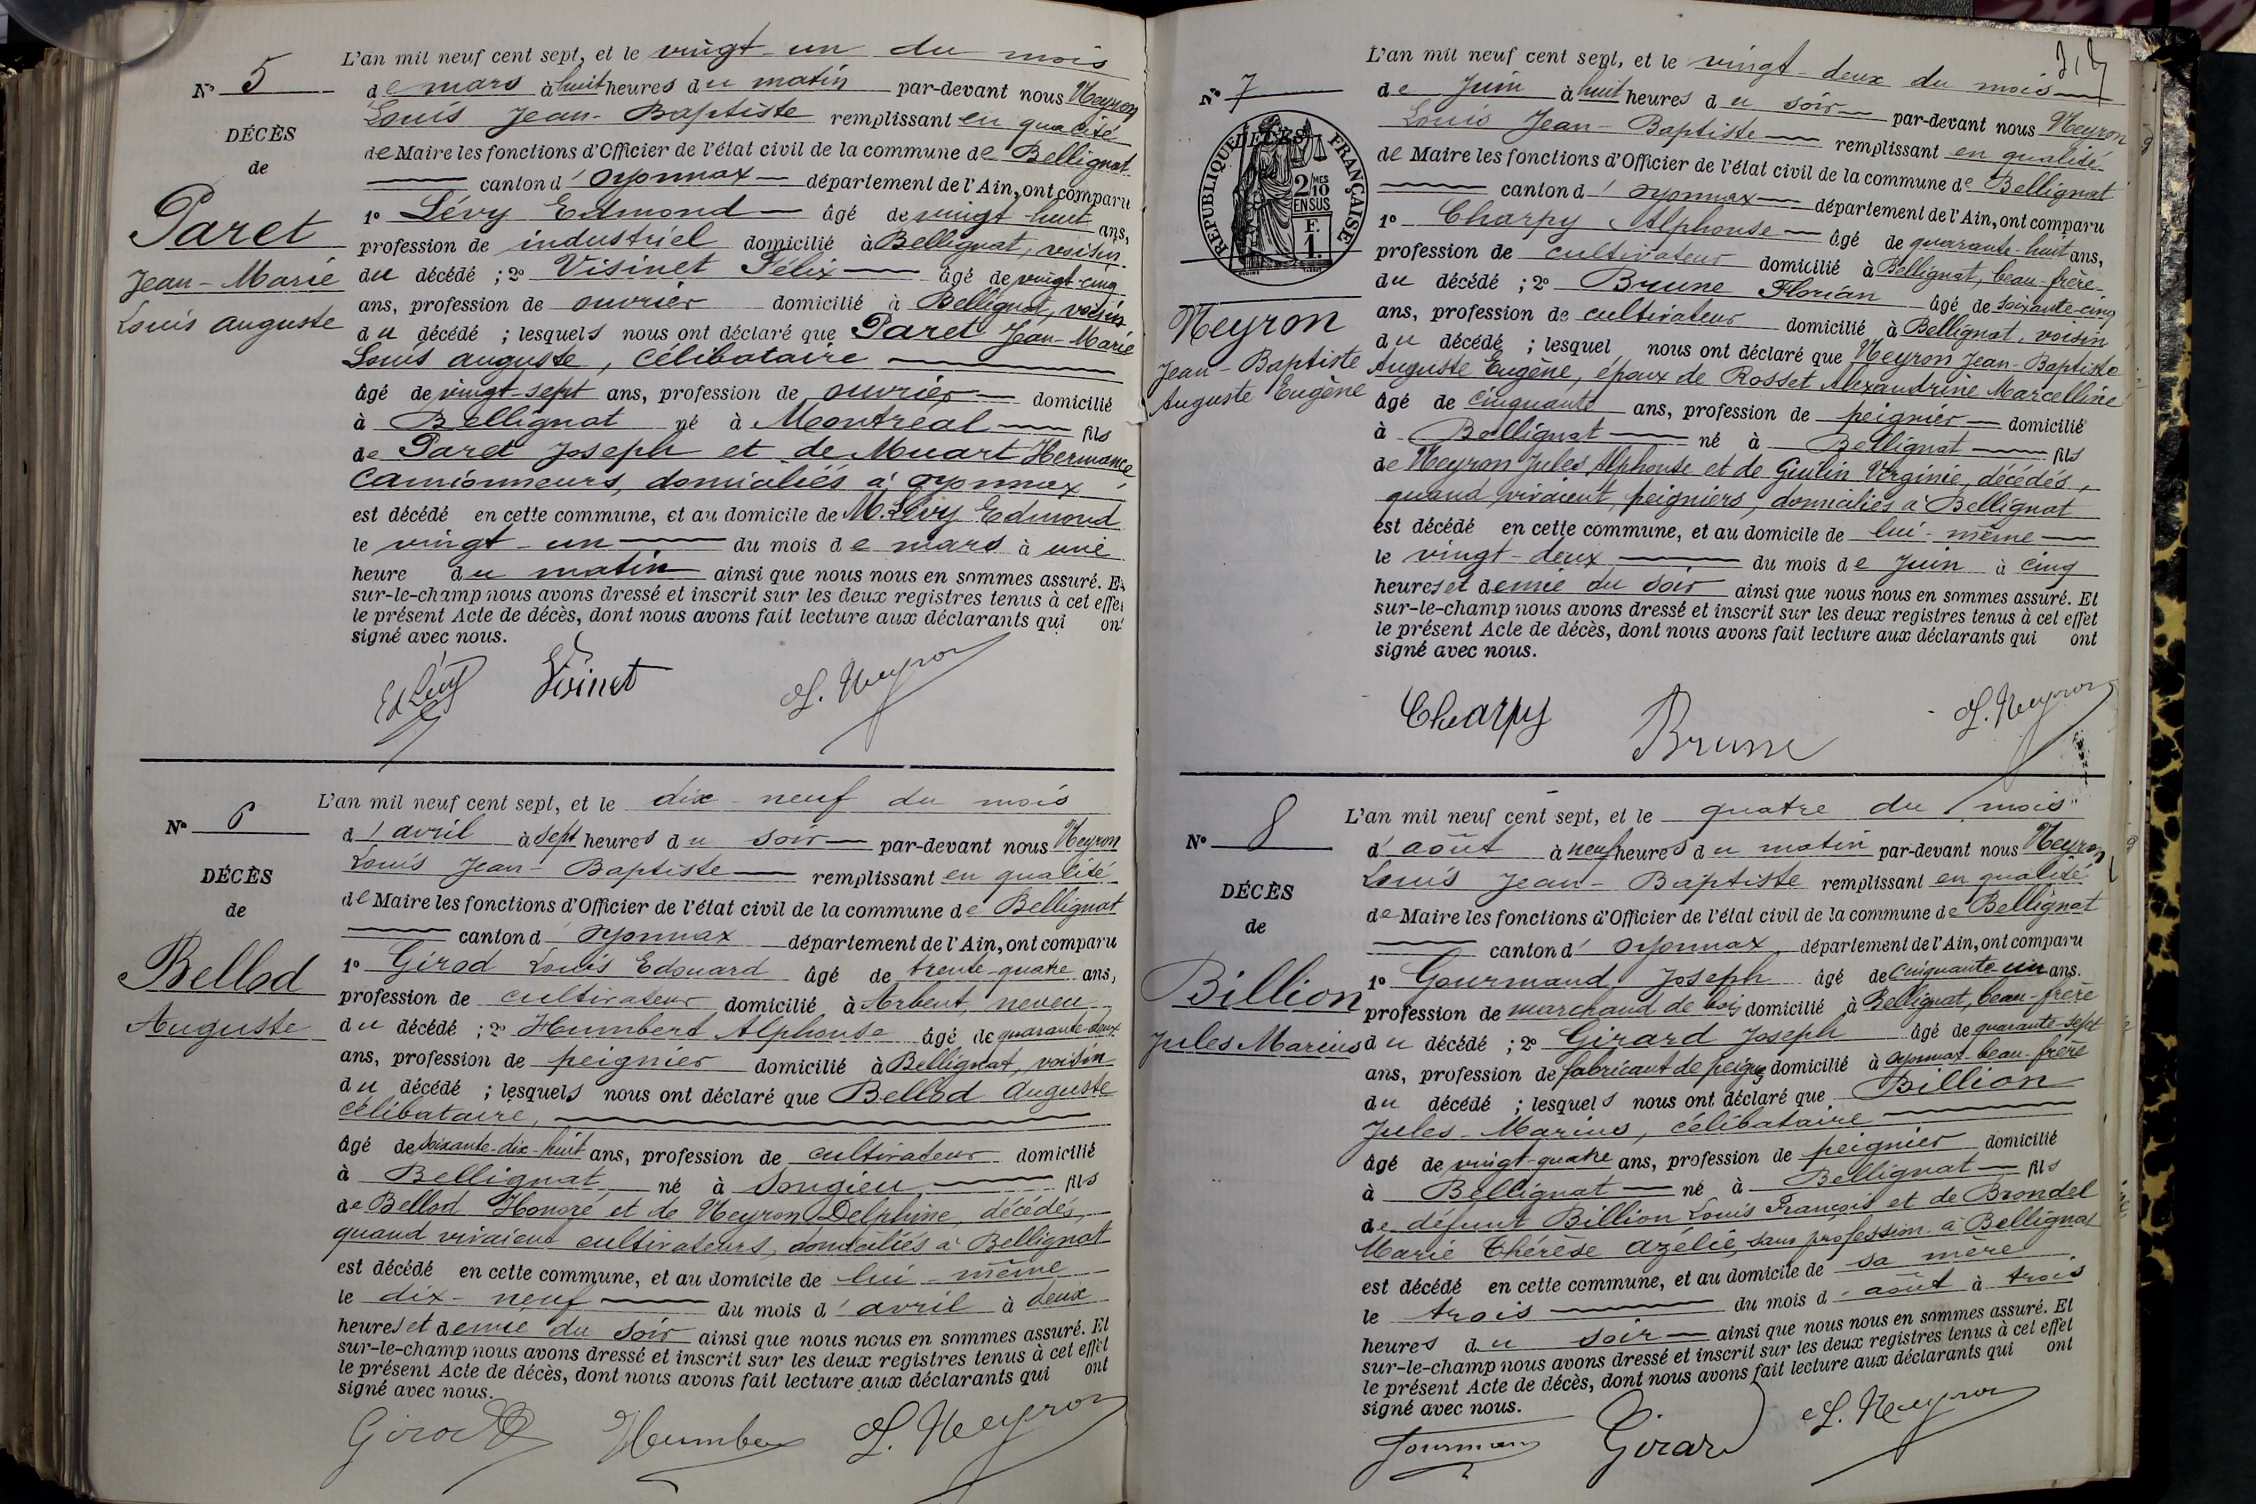 L'an mil neuf cent sept, et le vingt-un du mois
N° 5
de mars à huit heures du matin par-devant nous Neyron
Louis Jean-Baptiste remplissant en qualité
DÉCÈS
de Maire les fonctions d'Officier de l'état civil de la commune de Bellignat
de
canton d'Oyonnax département de l'Ain, ont comparu
Paret
1° Lévy Edmond âgé de vingt-huit ans,
profession de industriel domicilié à Bellignat, voisin
Jean-Marie
du décédé ; 2° Visinet Félix âgé de vingt-cinq
ans, profession de ouvrier domicilié à Bellignat, voisin
Louis Auguste
du décédé ; lesquels nous ont déclaré que Paret Jean-Marie
Louis Auguste, célibataire
âgé de vingt-sept ans, profession de ouvrier domicilié
à Bellignat né à Montréal fils
de Paret Joseph et de Muart Hermance,
camionneurs, domiciliés à Oyonnax
est décédé en cette commune, et au domicile de M. Lévy Edmond
le vingt-un du mois de mars à une
heure du matin ainsi que nous nous en sommes assuré. Et
sur-le-champ nous avons dressé et inscrit sur les deux registres tenus à cet effet
le présent Acte de décès, dont nous avons fait lecture aux déclarants qui ont
signé avec nous.
Ed Lévy Visinet L. Neyron
L'an mil neuf cent sept, et le dix-neuf du mois
N° 6
d'avril à sept heures du soir par-devant nous Neyron
Louis Jean-Baptiste remplissant en qualité
DÉCÈS
de Maire les fonctions d'Officier de l'état civil de la commune de Bellignat
de
canton d'Oyonnax département de l'Ain, ont comparu
Bellod
1° Girod Louis Edouard âgé de trente-quatre ans,
profession de cultivateur domicilié à Arbent, neveu
Auguste
du décédé ; 2° Humbert Alphonse âgé de quarante-deux
ans, profession de peignier domicilié à Bellignat, voisin
du décédé ; lesquels nous ont déclaré que Bellod Auguste
célibataire,
âgé de soixante-dix-huit ans, profession de cultivateur domicilié
à Bellignat né à Songieu fils
de Bellod Honoré et de Neyron Delphine, décédés,
quand vivaient cultivateurs, domiciliés à Bellignat
est décédé en cette commune, et au domicile de lui-même
le dix-neuf du mois d'avril à deux
heures et demie du soir ainsi que nous nous en sommes assuré. Et
sur-le-champ nous avons dressé et inscrit sur les deux registres tenus à cet effet
le présent Acte de décès, dont nous avons fait lecture aux déclarants qui ont
signé avec nous.
Girod Humbert L. Neyron
L'an mil neuf cent sept, et le vingt-deux du mois
N° 7
de Juin à huit heures du soir par-devant nous Neyron
Louis Jean-Baptiste remplissant en qualité
RÉPUBLIQUE FRANÇAISE
2/10 MES
EN SUS
F.
1.
de Maire les fonctions d'Officier de l'état civil de la commune de Bellignat
canton d'Oyonnax département de l'Ain, ont comparu
1° Charpy Alphonse âgé de quarante-huit ans,
profession de cultivateur domicilié à Bellignat, beau-frère
du décédé ; 2° Brune Florian âgé de soixante-cinq
ans, profession de cultivateur domicilié à Bellignat, voisin
Neyron
du décédé ; lesquel nous ont déclaré que Neyron Jean-Baptiste
Jean-Baptiste
Auguste Eugène, époux de Rosset Alexandrine Marcelline
Auguste Eugène
âgé de cinquante ans, profession de peignier domicilié
à Bellignat né à Bellignat fils
de Neyron Jules Alphonse et de Guilin Virginie, décédés,
quand vivaient, peigniers, domiciliés à Bellignat
est décédé en cette commune, et au domicile de lui-même
le vingt-deux du mois de Juin à cinq
heures et demie du soir ainsi que nous nous en sommes assuré. Et
sur-le-champ nous avons dressé et inscrit sur les deux registres tenus à cet effet
le présent Acte de décès, dont nous avons fait lecture aux déclarants qui ont
signé avec nous.
Charpy Brune L. Neyron
L'an mil neuf cent sept, et le quatre du mois
N° 8
d'août à neuf heures du matin par-devant nous Neyron
Louis Jean-Baptiste remplissant en qualité
DÉCÈS
de Maire les fonctions d'Officier de l'état civil de la commune de Bellignat
de
canton d'Oyonnax, département de l'Ain, ont comparu
Billion
1° Gourmand Joseph âgé de cinquante-un ans.
profession de marchand de bois domicilié à Bellignat, beau-frère
Jules Marius
du décédé ; 2° Girard Joseph âgé de quarante-sept
ans, profession de fabricant de peignes domicilié à Oyonnax-beau-frère
du décédé ; lesquels nous ont déclaré que Billion
Jules-Marius, célibataire
âgé de vingt-quatre ans, profession de peignier domicilié
à Bellignat né à Bellignat fils
de défunt Billion Louis François et de Brondel
Marie Thérèse Azélie, sans profession à Bellignat
est décédé en cette commune, et au domicile de sa mère
le trois du mois d'août à trois
heures du soir ainsi que nous nous en sommes assuré. Et
sur-le-champ nous avons dressé et inscrit sur les deux registres tenus à cet effet
le présent Acte de décès, dont nous avons fait lecture aux déclarants qui ont
signé avec nous.
Gourmand Girard L. Neyron